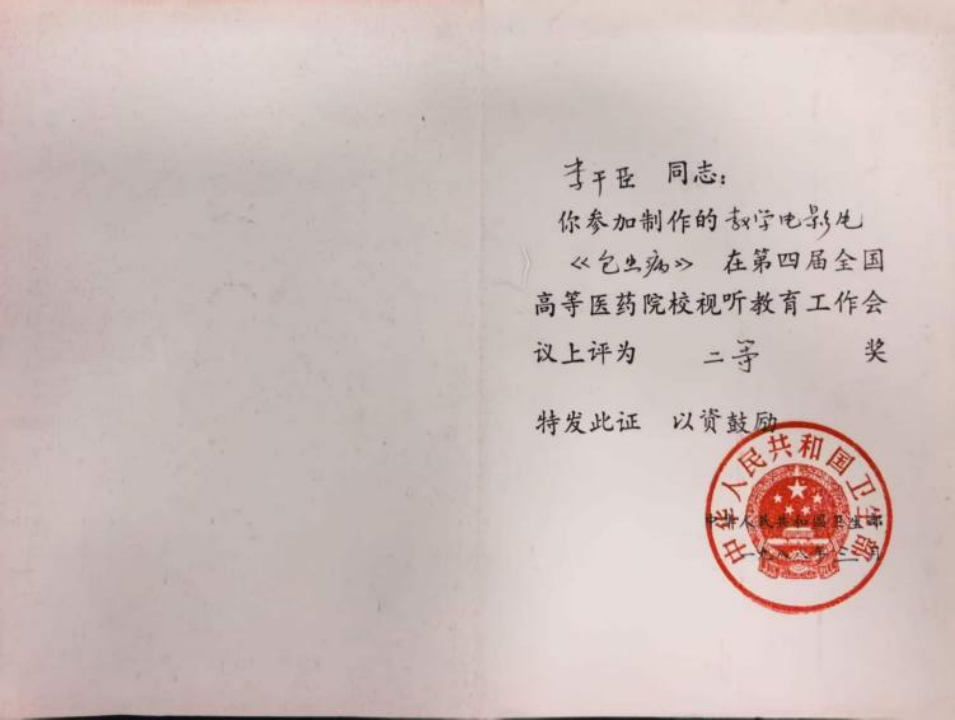 李干臣 同志：
你参加制作的教学电影片
《包虫病》 在第四届全国
高等医药院校视听教育工作会
议上评为 二等 奖
特发此证 以资鼓励
中华人民共和国卫生部
中华人民共和国卫生部
一九八八年三月